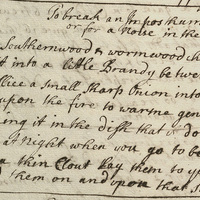 To break an Imposthum
or for a Noise in the
Southernwood & wormwood
it into a little Brandy be twe
slice a small sharp Onion into
upon the fire to warme gen
ing it in the dish that it do
at Night when you go to be
a thin Clout Lay them to y
them on and upon that